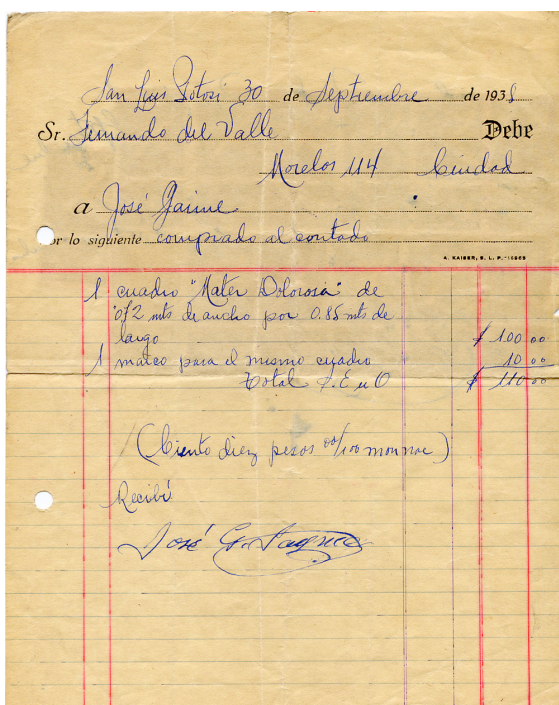 San Luis Potosí 30 de Septiembre de 193
Sr. Fernando del Valle Debe
Morelos 114 Ciudad
a José Jaime
or lo siguiente comprado al contado
A. KAISER, S. L. P.
1 cuadro "Mater Dolorosa" de
0.72 mts de ancho por 0.85 mts de
largo $ 100.00
1 marco para el mismo cuadro 10 00
Total S. E u O $ 110 00
(Ciento diez pesos 00/100 mon nac)
Recibí
José G.